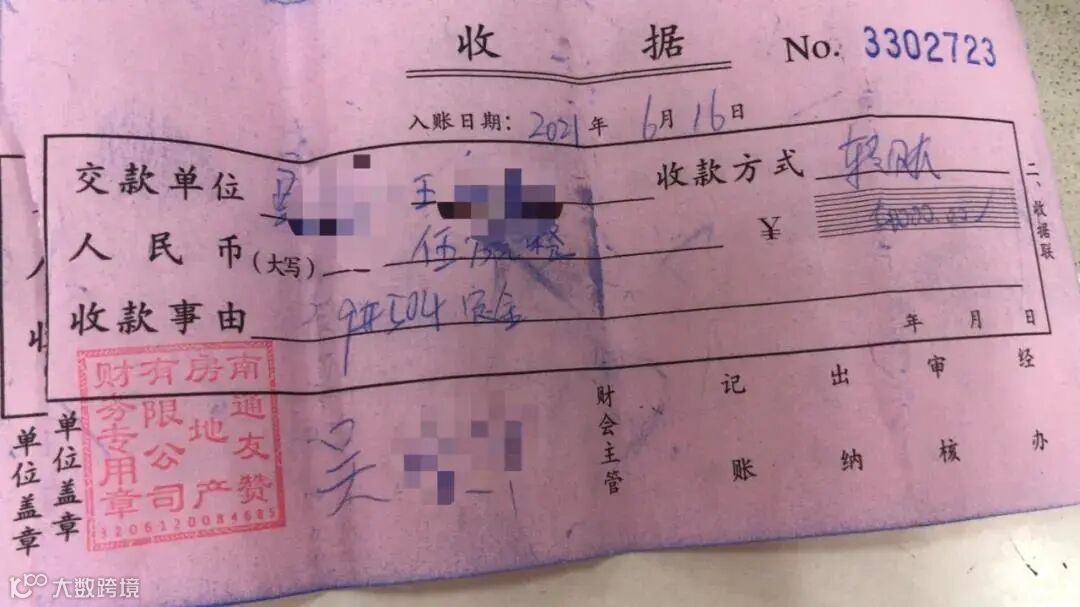 收据 No. 3302723
入账日期: 2021年 6月 16日
交款单位 王 收款方式 转账
人民币(大写) 伍万元整 ¥
收款事由 9#504 定金
年 月 日
二、收据联
财会主管 记账 出纳 审核 经办
单位盖章
单位盖章
南通友赞房地产有限公司财务专用章
3206120084685
吴
大数跨境